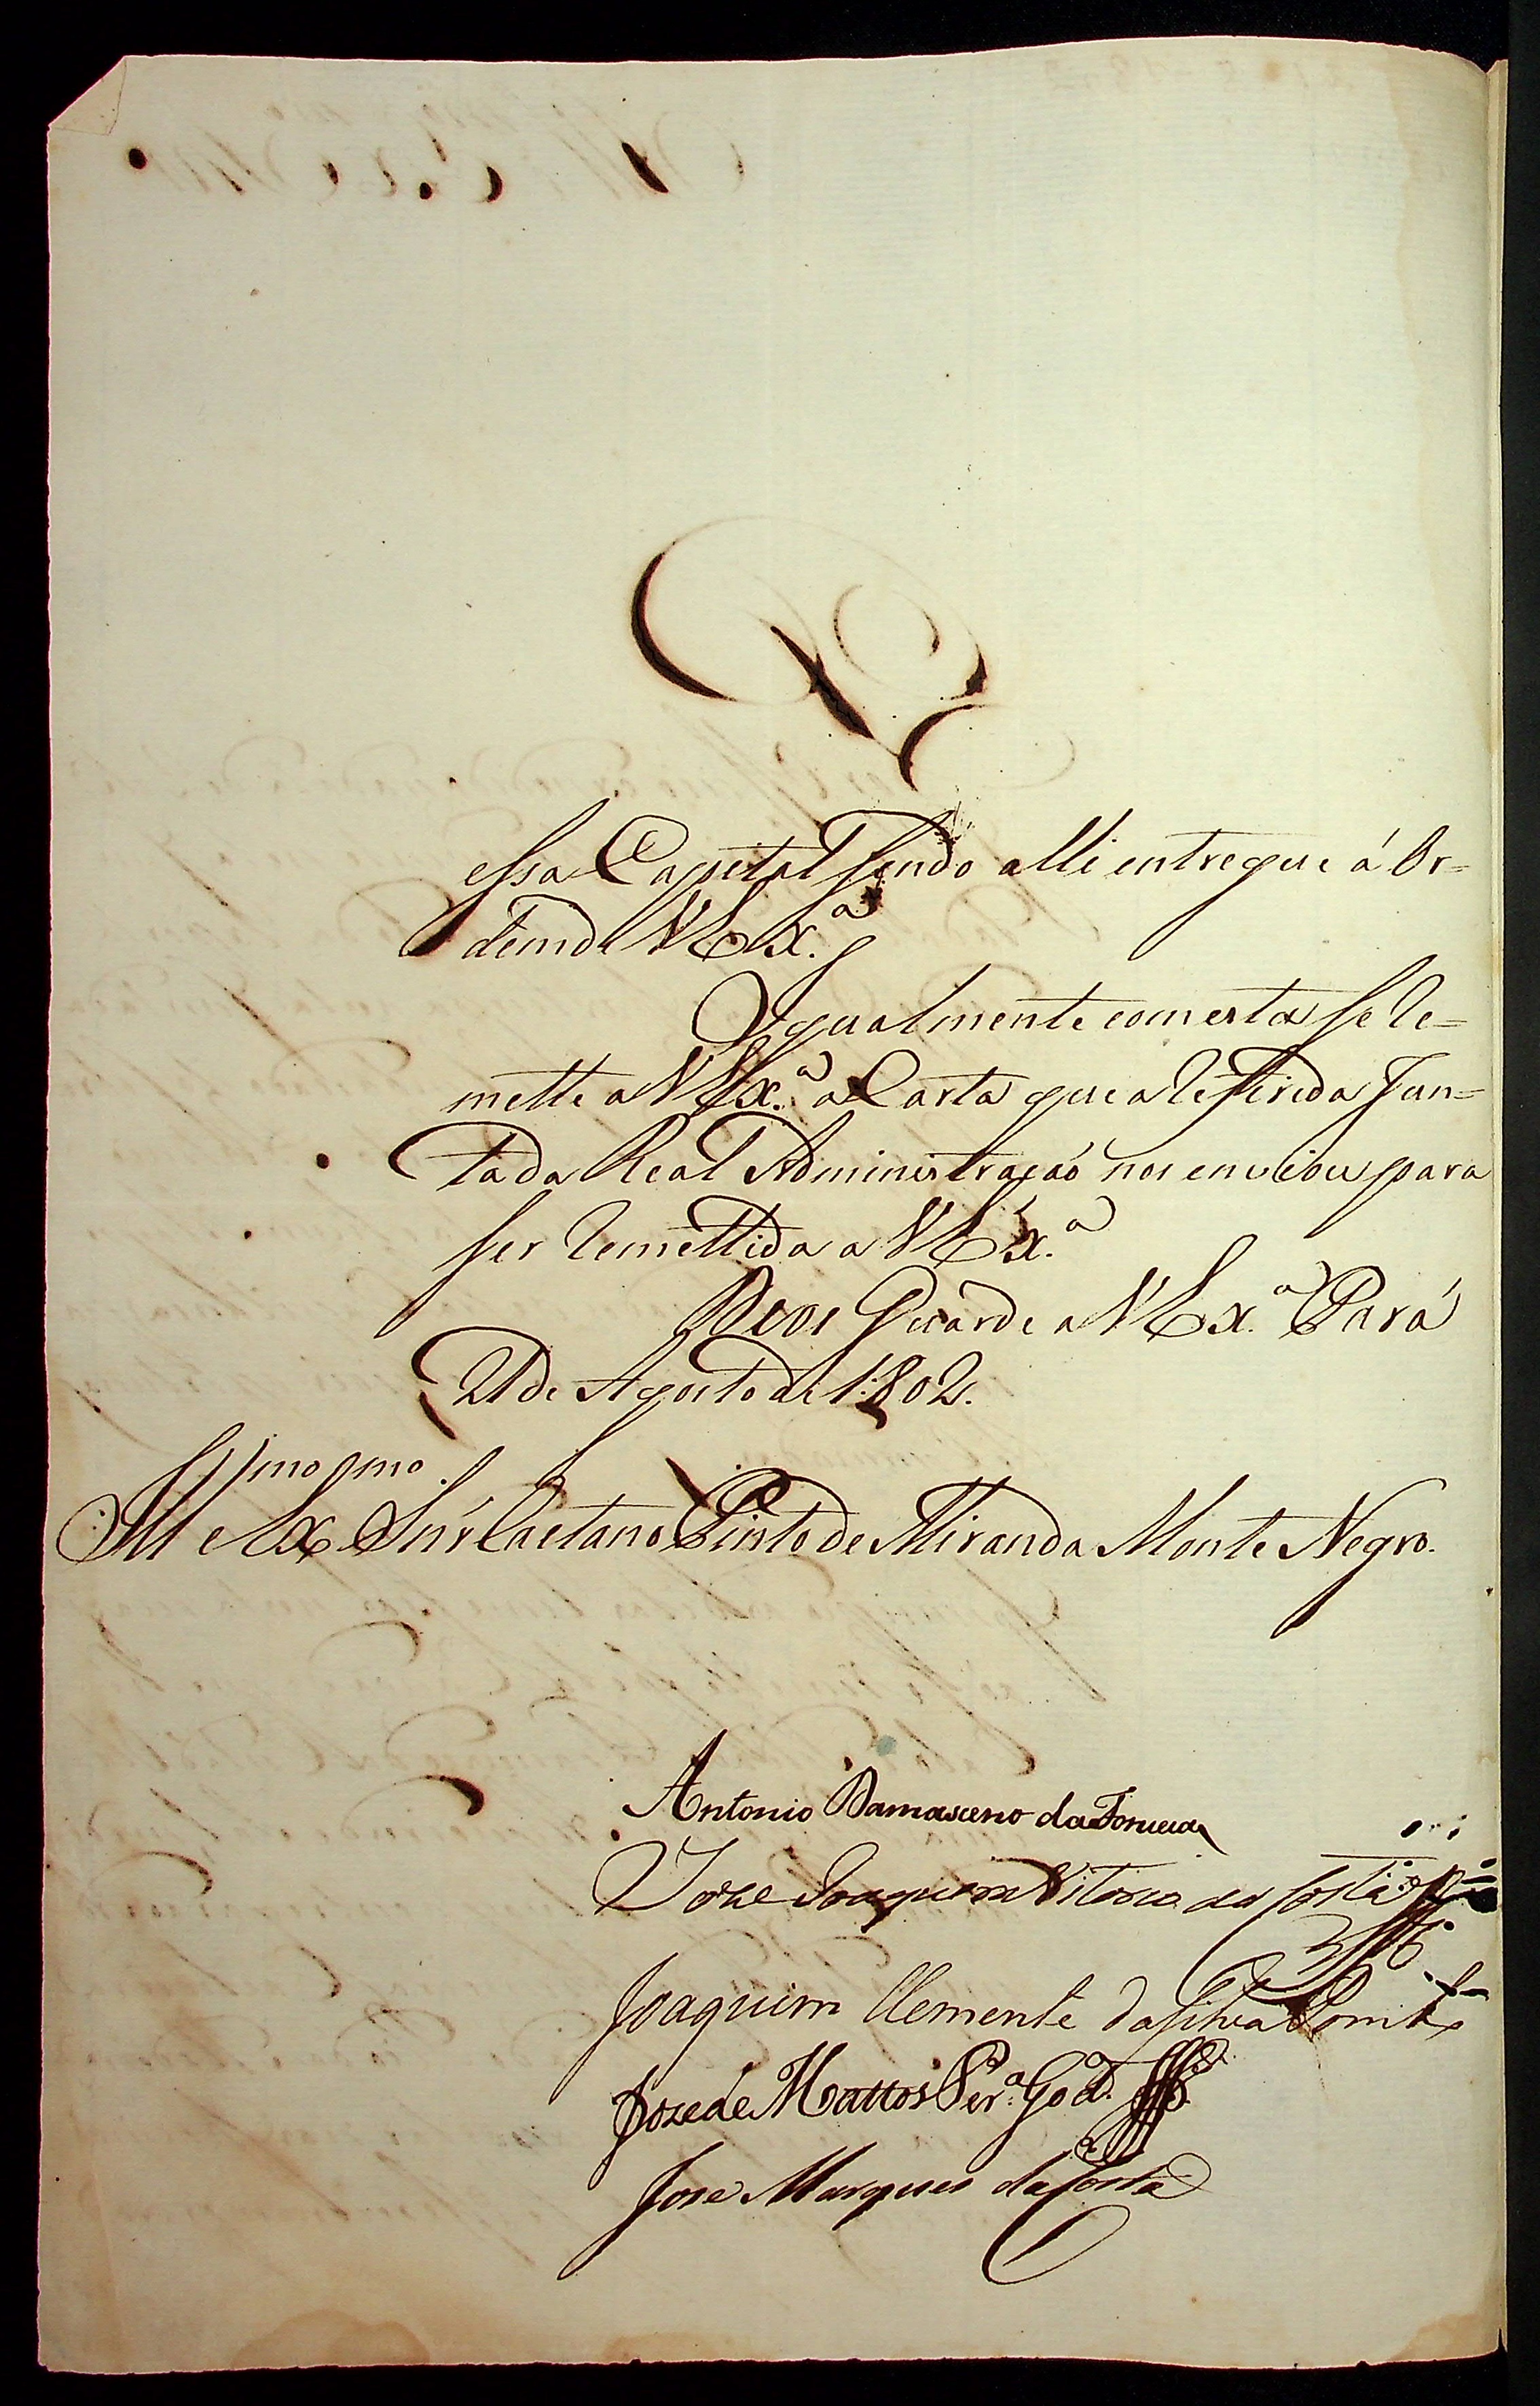 essa Capital sendo alli entregue á Or=
dem de V Ex.ª
Igualmente com esta se Re=
mette a V Ex.ª a Carta que a Referida Jun=
ta da Real Administração nos enviou para
ser Remettida a V Ex.ª
Deos Guarde a V Ex.ª Pará
21 de Agosto de 1802.
Ill.mo e Ex.mo Snr Caetano Pinto de Miranda Monte Negro.
Antonio Damasceno da Fonseca
Joze Joaquim Vitorio da Costa
Joaquim Clemente da Silva Pomb.º
Joze de Mattos Per.ª God.
Joze Marques da Costa